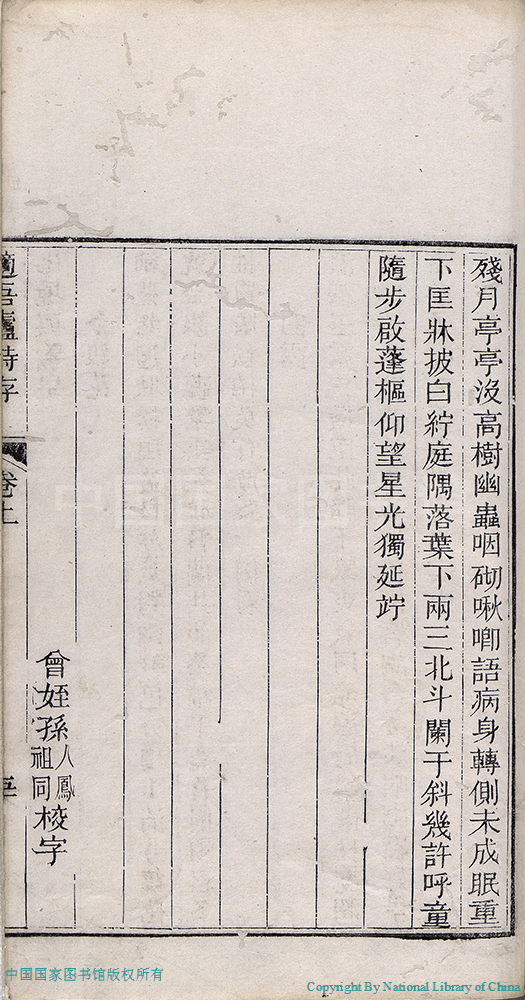 殘月亭亭沒高樹幽蟲咽砌啾喞語病身轉側未成眠重
下匡牀披白紵庭隅落葉下兩三北斗闌干斜幾許呼童
隨步啟蓬樞仰望星光獨延竚
曾姪孫人鳳祖同校字
適吾廬詩存
卷上
中国国家图书馆版权所有
Copyright By National Library of China